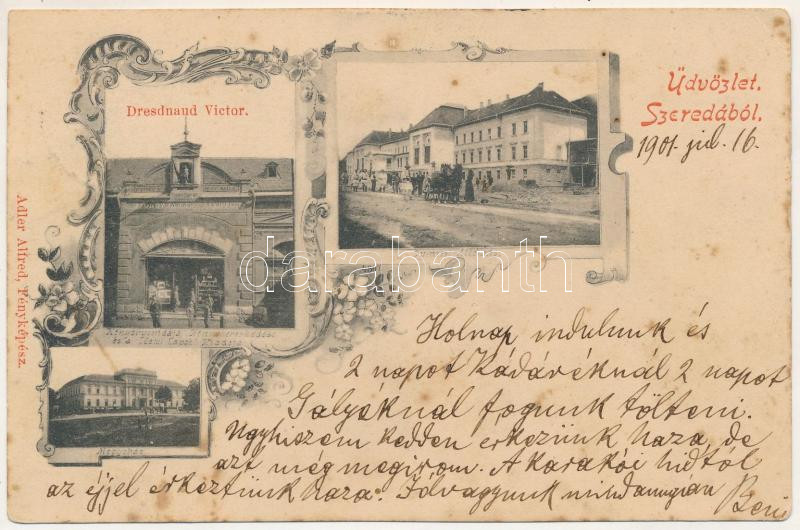 Dresdnaud Victor.
Üdvözlet.
Szeredából.
1901. júl. 16.
Adler Alfred, Fényképész.
darabanth
Könyvnyomdája
és a
Kiadója
Megyeház
Holnap indulunk és
2 napot Kádáréknál 2 napot
Gályéknál fogunk tölteni.
Ugyhiszem kedden érkezünk haza de
azt még megirom. A karakói hidtól
az éjjel érkeztünk haza. Jól vagyunk mindannyian
Beni